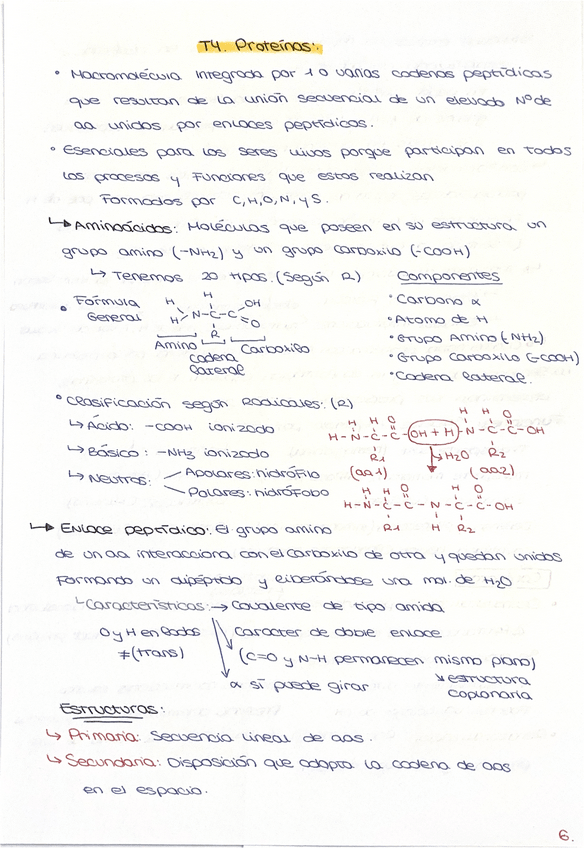 T4. Proteínas:
• Macromolécula integrada por 1 o varias cadenas peptídicas
que resultan de la unión secuencial de un elevado Nº de
aa unidos por enlaces peptídicos.
• Esenciales para los seres vivos porque participan en todos
los procesos y funciones que estos realizan
Formados por C, H, O, N, y S.
↳ Aminoácidos: Moléculas que poseen en su estructura un
grupo amino (-NH2) y un grupo carboxilo (-COOH)
↳ Tenemos 20 tipos. (Según R)
Componentes
• Carbono α
• Atomo de H
• Grupo Amino (-NH2)
• Grupo Carboxilo (-COOH)
• Cadena lateral.
• Fórmula
General
H H
N-C-C OH
H R O
Amino Carboxilo
cadena
lateral
• Clasificación según Radicales: (R)
↳ Ácido: -COOH ionizado
↳ Básico: -NH3 ionizado
↳ Neutros: Apolares: hidrófilo
Polares: hidrófobo
H H O H H O
H-N-C-C-OH + H-N-C-C-OH
R1 H2O R2
(aa1) (aa2)
H H O H O
H-N-C-C-N-C-C-OH
R1 H R2
↳ Enlace peptídico: El grupo amino
de un aa interacciona con el carboxilo de otra y quedan unidos
formando un dipéptido y liberándose una mol. de H2O
↳ Características: → Covalente de tipo amida
O y H en lados
≠ (trans)
Caracter de doble enlace
(C=O y N-H permanecen mismo plano)
↘ estructura
coplonaria
α sí puede girar
Estructuras:
↳ Primaria: Secuencia lineal de aas.
↳ Secundaria: Disposición que adopta la cadena de aas
en el espacio.
6.